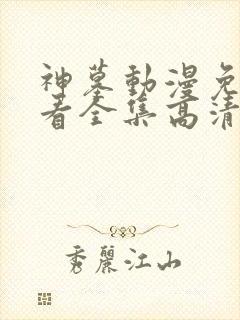 神墓動漫免
看全集高清
秀麗江山